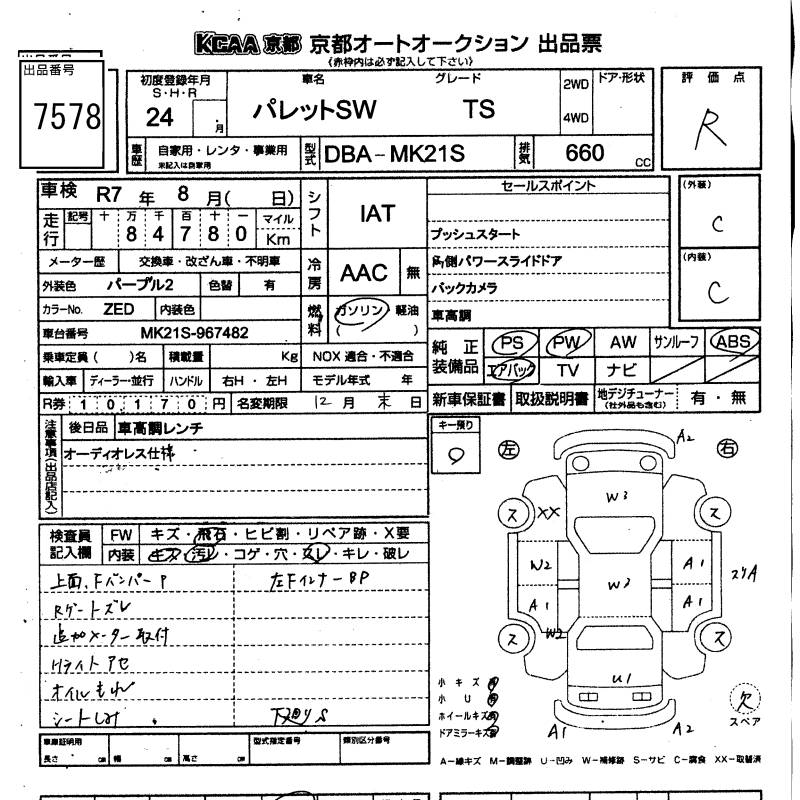 KCAA 京都 京都オートオークション 出品票
《赤枠内は必ず記入して下さい》
出品番号
7578
初度登録年月
S・H・R
24 月
車名
パレットSW
グレード
TS
2WD
4WD
ドア・形状
評価点
R
車歴
自家用・レンタ・事業用
未記入は自家用
型式
DBA-MK21S
排気
660 CC
車検 R7 年 8 月( 日)
走行
記号 十 万 千 百 十 一 マイル
8 4 7 8 0 Km
シフト
IAT
メーター歴 交換車・改ざん車・不明車
冷房
AAC 無
外装色 パープル2 色替 有
カラーNo. ZED 内装色
燃料
ガソリン・軽油
( )
車台番号 MK21S-967482
乗車定員( )名 積載量 Kg NOX 適合・不適合
輸入車 ディーラー・並行 ハンドル 右H・左H モデル年式 年
R券 10170円 名変期限 12月 末 日
セールスポイント
プッシュスタート
角側パワースライドドア
バックカメラ
車高調
(外装)
C
(内装)
C
純正装備品
PS PW AW サンルーフ ABS
エアバック TV ナビ
新車保証書 取扱説明書 地デジチューナー(社外品も含む) 有・無
注意事項(出品店記入)
後日品 車高調レンチ
オーディオレス仕様
キー預り
左 右
検査員記入欄
FW キズ・飛石・ヒビ割・リペア跡・X要
内装 キズ・汚レ・コゲ・穴・スレ・キレ・破レ
上面、FバンパーP
左FインナーBP
Rゲートズレ
追加メーター取付
Hライトアセ
オイルもれ
シートしみ
下廻りS
A2
W3
ス XX ス
W2 A1
W3
スリA
A1 A1
W2
ス ス
U1
A1 A2
小キズ
小U
ホイールキズ
ドアミラーキズ
欠
スペア
車庫証明用
長さ cm 幅 cm 高さ cm
型式指定番号
類別区分番号
A-線キズ M-調整跡 U-凹み W-補修跡 S-サビ C-腐食 XX-取替済